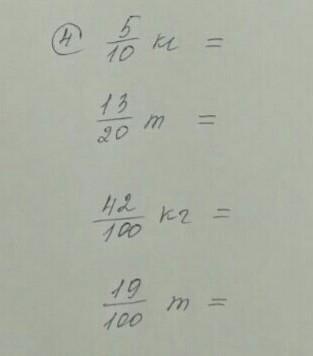 4) 5/10 кг =
13/20 т =
42/100 кг =
19/100 т =